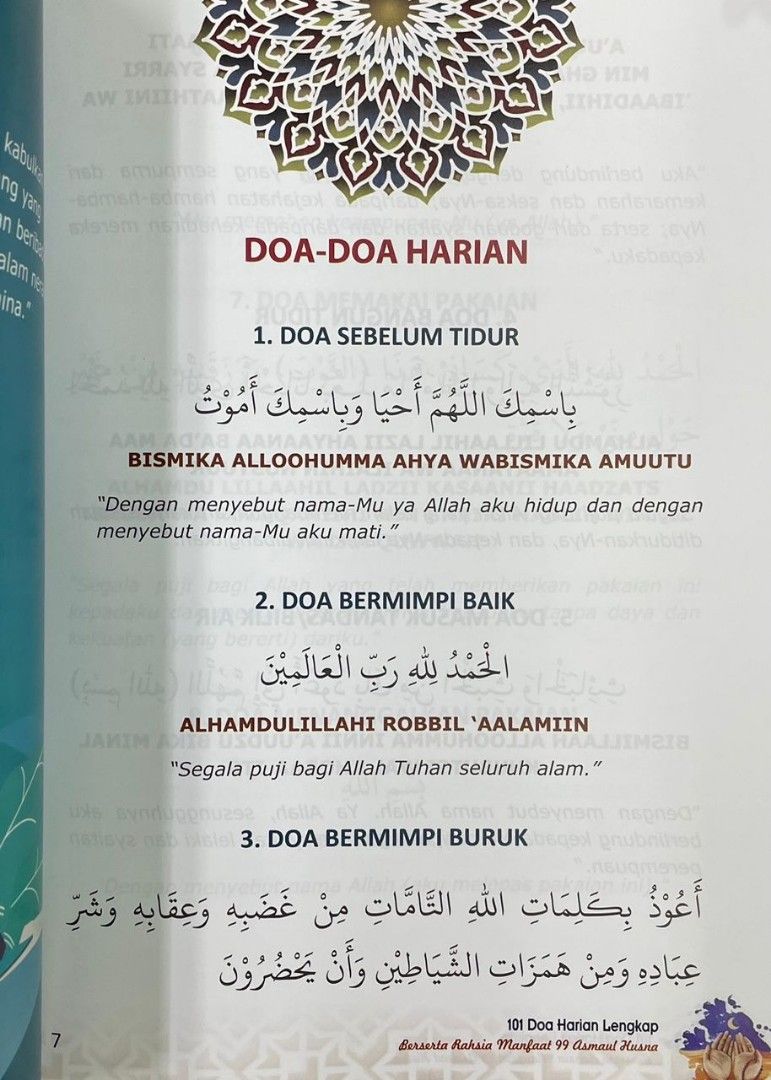 kabulkan
ng yang
alam nera
ina."
DOA-DOA HARIAN
1. DOA SEBELUM TIDUR
بِاسْمِكَ اللَّهُمَّ أَحْيَا وَبِاسْمِكَ أَمُوْتُ
BISMIKA ALLOOHUMMA AHYA WABISMIKA AMUUTU
"Dengan menyebut nama-Mu ya Allah aku hidup dan dengan
menyebut nama-Mu aku mati."
2. DOA BERMIMPI BAIK
الْحَمْدُ لِلّٰهِ رَبِّ الْعَالَمِيْنَ
ALHAMDULILLAHI ROBBIL 'AALAMIIN
"Segala puji bagi Allah Tuhan seluruh alam."
3. DOA BERMIMPI BURUK
أَعُوْذُ بِكَلِمَاتِ اللهِ التَّامَّاتِ مِنْ غَضَبِهِ وَعِقَابِهِ وَشَرِّ
عِبَادِهِ وَمِنْ هَمَزَاتِ الشَّيَاطِيْنِ وَأَنْ يَحْضُرُوْنَ
7
101 Doa Harian Lengkap
Berserta Rahsia Manfaat 99 Asmaul Husna